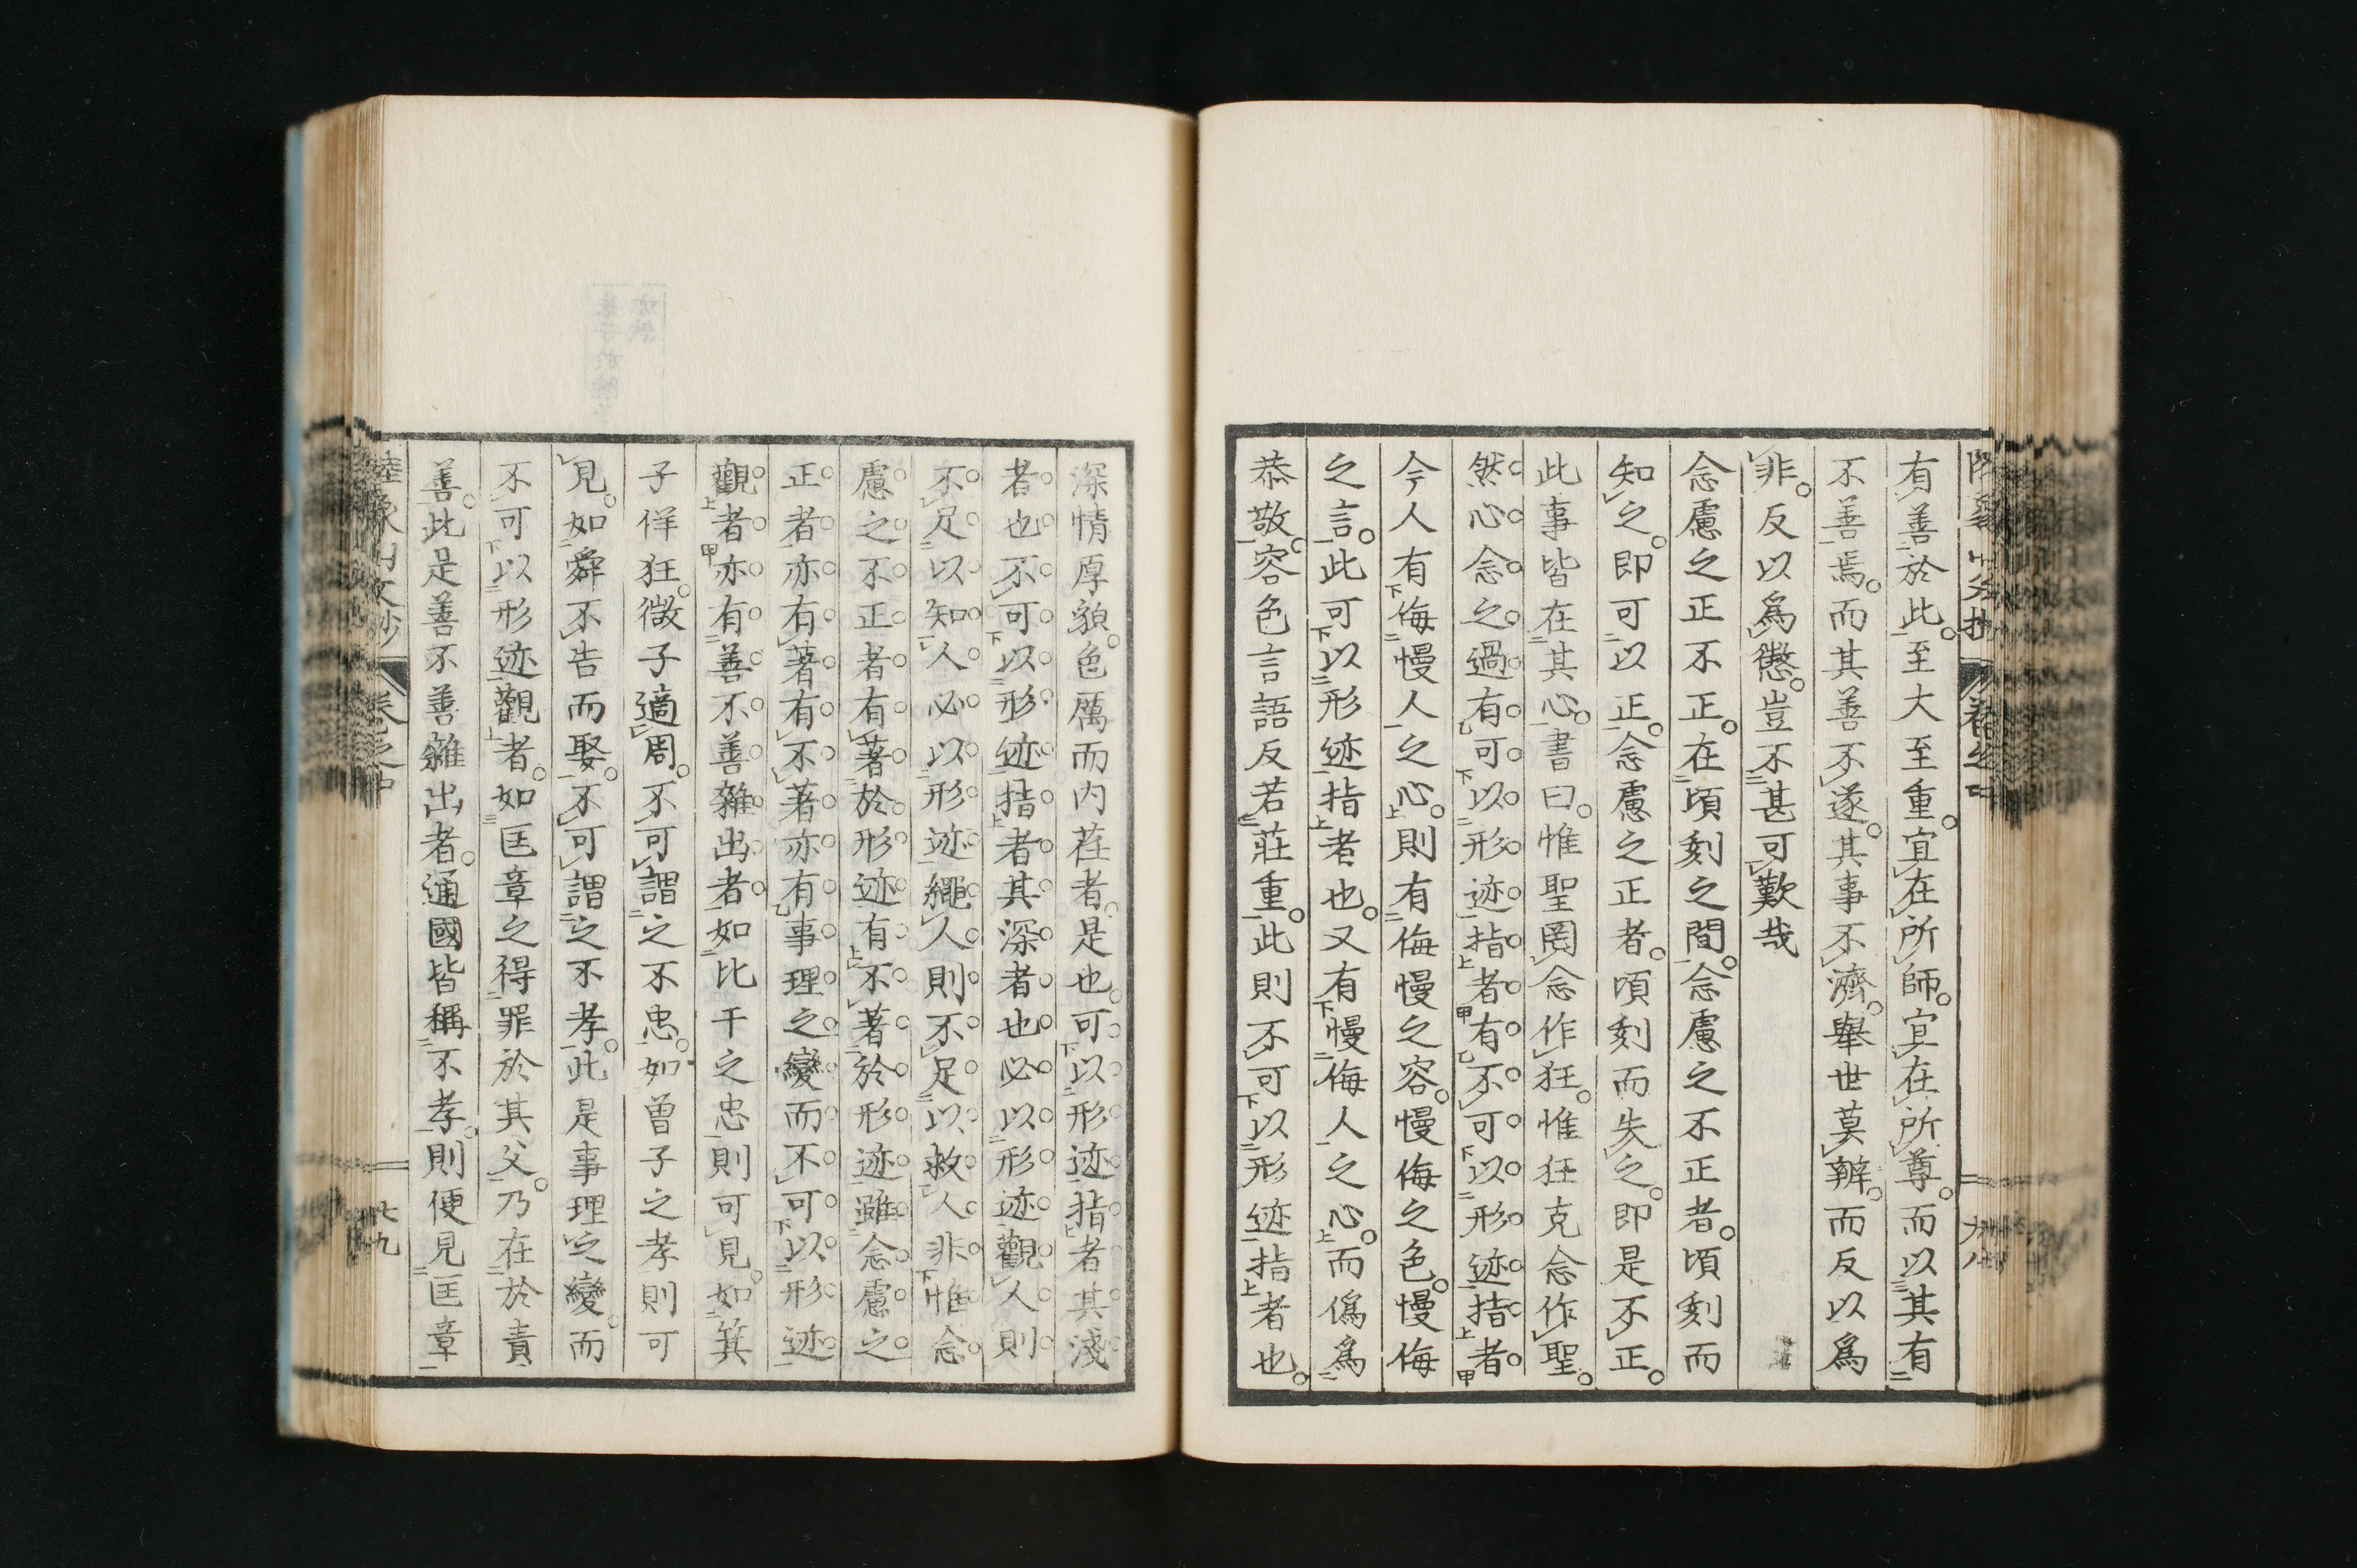 有善於此。至大至重。宜在所師。宜在所尊。而以其有
不善焉。而其善不遂。其事不濟。舉世莫辨。而反以爲
非。反以爲懲。豈不甚可歎哉
念慮之正不正。在頃刻之間。念慮之不正者。頃刻而
知之。即可以正。念慮之正者。頃刻而失之。即是不正。
此事皆在其心。書曰。惟聖罔念作狂。惟狂克念作聖。
然心念之過有可以形迹指者有不可以形迹指者
今人有侮慢人之心。則有侮慢之容。慢侮之色。慢侮
之言。此可以形迹指者也。又有慢侮人之心。而僞爲
恭敬。容色言語反若莊重。此則不可以形迹指者也。
深情厚貌。色厲而内荏者。是也。可以形迹指者其淺
者也不可以形迹指者其深者也必以形迹觀人則
不足以知人必以形迹繩人則不足以救人非惟念
慮之不正者有著於形迹有不著於形迹雖念慮之
正者亦有著有不著亦有事理之變而不可以形迹
觀者亦有善不善雜出者如比干之忠則可見。如箕
子佯狂。微子適周。不可謂之不忠。如曾子之孝則可
見。如舜不告而娶。不可謂之不孝。此是事理之變。而
不可以形迹觀者。如匡章之得罪於其父。乃在於責
善。此是善不善雜出者。通國皆稱不孝。則便見匡章
陸象山文抄 卷之中 七九